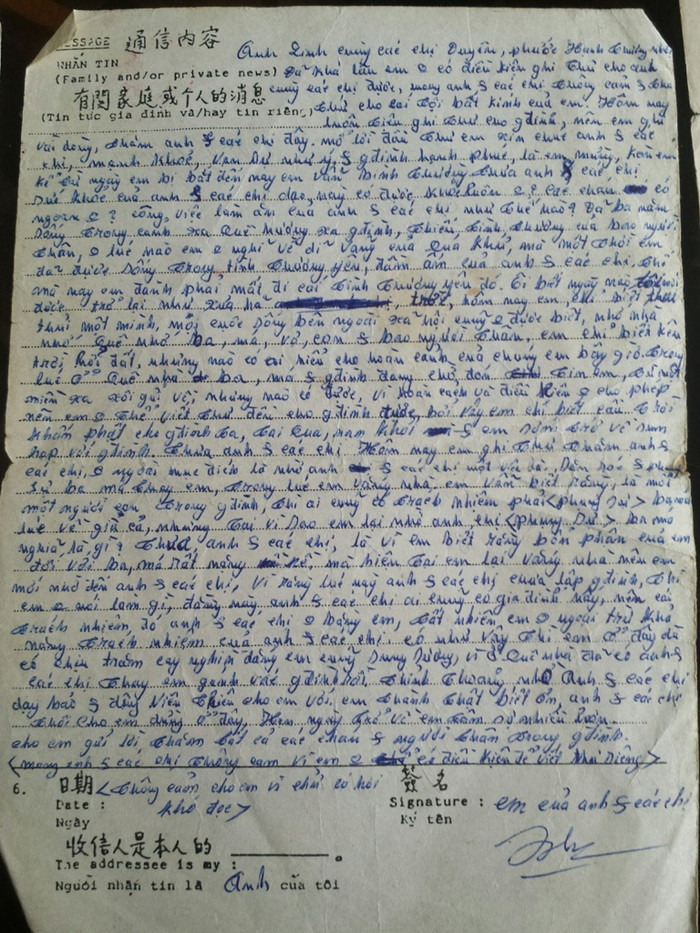 MESSAGE 通信內容
NHẮN TIN
(Family and/or private news)
有関家庭或个人的消息
(Tin tức gia đình và/hay tin riêng)
Anh Linh cùng các chị Duyên, phước Hạnh thương nhớ
Đã khá lâu em o có điều kiện ghi thư cho anh
cùng các chị được, mong anh & các chị thông cảm & tha
thứ cho cái tội bất kính của em. Hôm nay
luôn tiện ghi thư cho gđình, nên em ghi
vài dòng, thăm anh & các chị đây. mở lời đầu thư em xin chúc anh & các
chị, mạnh khoẻ, vạn sự như ý & gđình hạnh phúc, là em mừng, còn em
kể từ ngày em bị bắt đến nay em vẫn bình thường thưa anh & các chị
Sức khoẻ của anh & các chị dạo này có được khoẻ luôn o? các cháu có
ngoan o? công việc làm ăn của anh & các chị như thế nào? Đã ba năm
sống trong cảnh xa quê hương xa gđình, thiếu tình thương của bao người
thân, o lúc nào em o nghĩ về dĩ vãng của quá khứ, mà một thời em
đã được sống trong tình thương yêu, đầm ấm của anh & các chị, thế
mà nay em đành phải mất đi cái tình thương yêu đó. Ôi biết ngày nào
được trở lại như xưa hả trời, hôm nay em chỉ biết
thui một mình, mọi cuộc sống bên ngoài xã hội cũng o được biết, nhớ nhà
nhớ quê nhớ ba, má, vợ, con & bao người thân, em chỉ biết kêu
trời hỏi đất, nhưng nào có ai hiểu cho hoàn cảnh của chúng em bây giờ trong
lúc ở quê nhà ba, má & gđình đang chờ đón tin em, từ một
miền xa xôi gửi về, nhưng nào có được, vì hoàn cảnh và điều kiện o cho phép
nên em o thể viết thư đều cho gđình được, bởi vậy em chỉ biết cầu trời
khấn phật cho gđình ta, tai qua, nạn khỏi & em sớm trở về sum
họp với gđình. Thưa anh & các chị Hôm nay em ghi thư thăm anh &
các chị, o ngoài mục đích là nhờ anh & các chị một vài
ba má thay em, trong lúc em vắng nhà. em vẫn biết rằng, là một
một người con trong gđình, thì ai cũng có trách nhiệm phải <phụng sự> ba, má
lúc về già cả, nhưng tại vì sao em lại nhờ anh, chị <phụng sự> ba má
nghĩa là gì? thưa anh & các chị, là vì em biết rằng bổn phận của em
đối với ba, má rất nặng nề, mà hiện tại em lại vắng nhà nên em
mới nhờ đến anh & các chị, vì rằng lúc này anh & các chị chưa lập gđình, thì
em o nói làm gì, đằng này, anh & các chị ai cũng có gia đình này, nên cái
trách nhiệm, đó anh & các chị o bằng em, tất nhiên em o ngoại trừ khả
năng trách nhiệm của anh & các chị có như vậy thì em ở đây dù
có chịu trăm cay nghìn đắng em cũng sung sướng, vì ở quê nhà đã có anh &
các chị thay em gánh vác gđình rồi. thỉnh thoảng nhờ anh & các chị
dạy bảo & động viên thiên cho em với. em thành thật biết ơn, anh & các chị
thôi cho em dừng ở đây. Hẹn ngày thơ về em tâm sự nhiều hơn.
cho em gửi lời, thăm tất cả các cháu & người thân trong gđình.
<mong anh & các chị thông cảm vì em o có điều kiện để viết thư riêng>
6. 日期 <thông cảm cho em vì chữ có hơi
khó đọc>
Date :
Ngày
簽名
Signature : em của anh & các chị
Ký tên
收信人是本人的 ______。
The addressee is my :
Người nhận tin là Anh của tôi